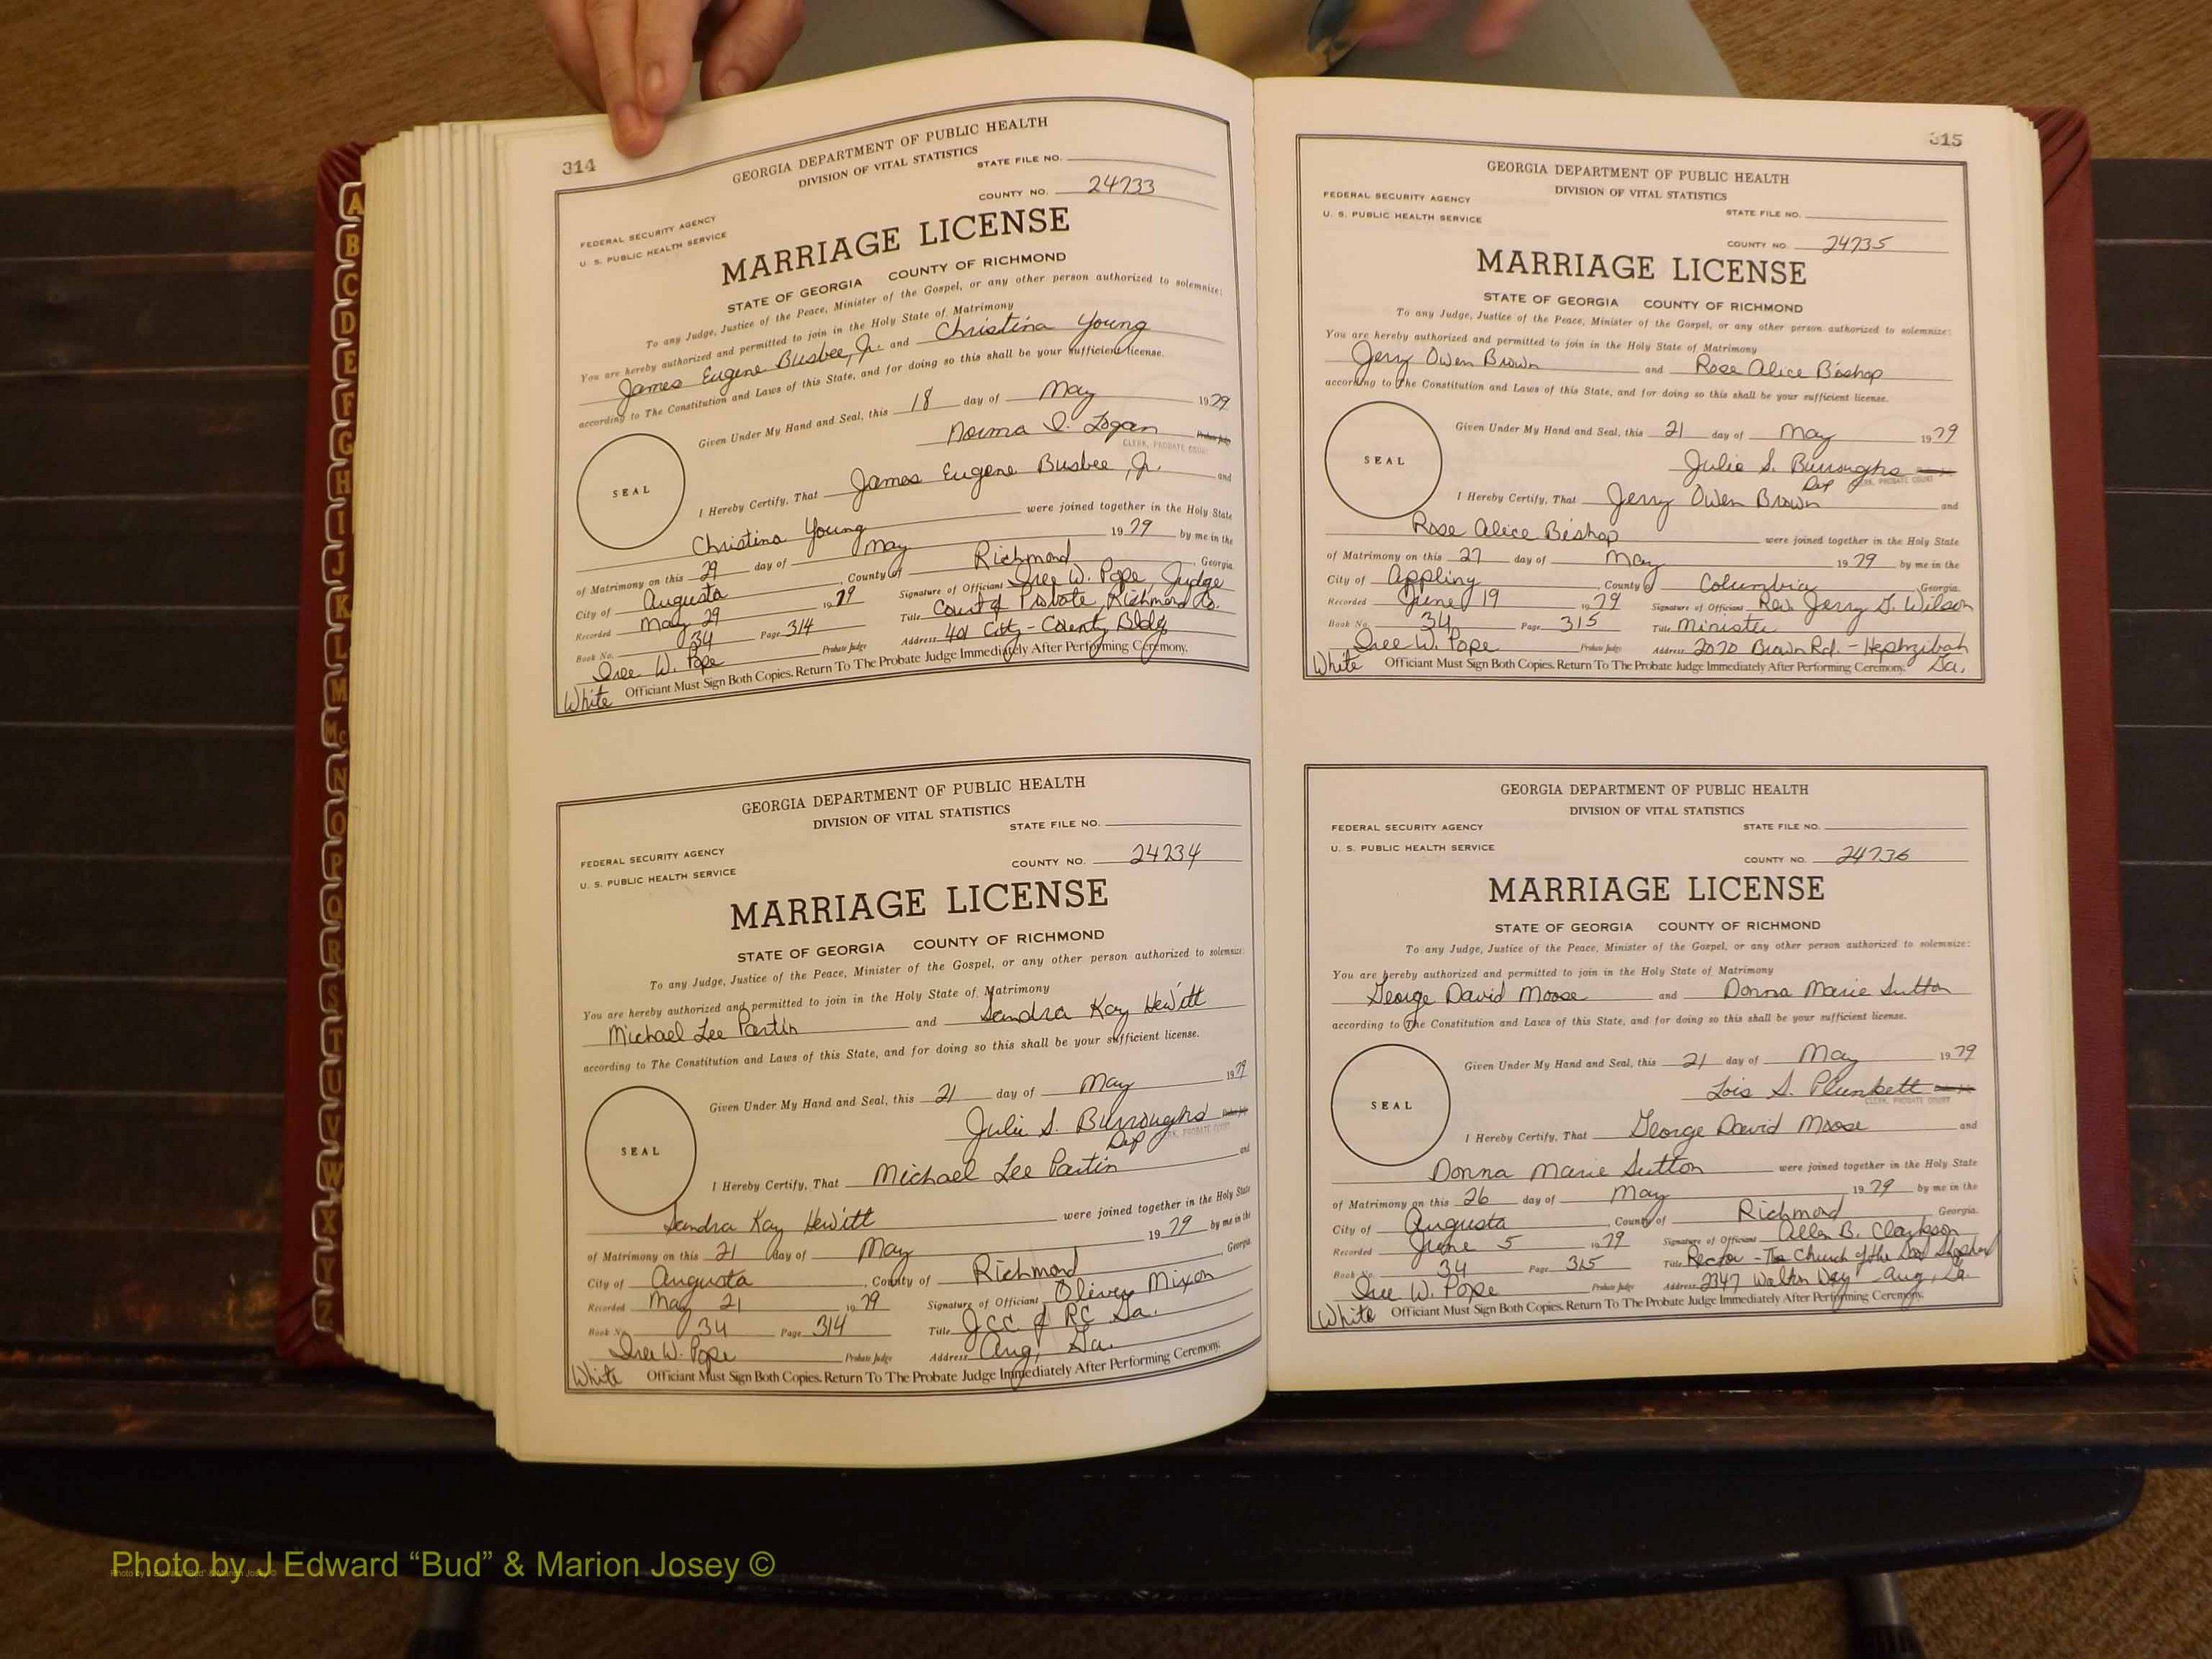 314
GEORGIA DEPARTMENT OF PUBLIC HEALTH
DIVISION OF VITAL STATISTICS
STATE FILE NO.
COUNTY NO. 24733
FEDERAL SECURITY AGENCY
U. S. PUBLIC HEALTH SERVICE
MARRIAGE LICENSE
STATE OF GEORGIA COUNTY OF RICHMOND
To any Judge, Justice of the Peace, Minister of the Gospel, or any other person authorized to solemnize:
You are hereby authorized and permitted to join in the Holy State of Matrimony
James Eugene Busbee, Jr. and Christina Young
according to The Constitution and Laws of this State, and for doing so this shall be your sufficient license.
Given Under My Hand and Seal, this 18 day of May 1979
Norma I. Logan
CLERK, PROBATE COURT
SEAL
I Hereby Certify, That James Eugene Busbee, Jr. and
Christina Young were joined together in the Holy State
of Matrimony on this 29 day of May 1979 by me in the
City of Augusta, County of Richmond Georgia
Recorded May 29 1979 Signature of Officiant Isee W. Pope, Judge
Title Court of Probate, Richmond Co.
Book No. 34 Page 314 Address 401 City-County Bldg
Isee W. Pope Probate Judge
Officiant Must Sign Both Copies. Return To The Probate Judge Immediately After Performing Ceremony.
White
GEORGIA DEPARTMENT OF PUBLIC HEALTH
DIVISION OF VITAL STATISTICS
STATE FILE NO.
COUNTY NO. 24734
FEDERAL SECURITY AGENCY
U. S. PUBLIC HEALTH SERVICE
MARRIAGE LICENSE
STATE OF GEORGIA COUNTY OF RICHMOND
To any Judge, Justice of the Peace, Minister of the Gospel, or any other person authorized to solemnize:
You are hereby authorized and permitted to join in the Holy State of Matrimony
Michael Lee Partin and Sandra Kay Hewitt
according to The Constitution and Laws of this State, and for doing so this shall be your sufficient license.
Given Under My Hand and Seal, this 21 day of May 1979
Julie S. Burroughs
Dep CLERK, PROBATE COURT
SEAL
I Hereby Certify, That Michael Lee Partin and
Sandra Kay Hewitt were joined together in the Holy State
of Matrimony on this 21 day of May 1979 by me in the
City of Augusta, County of Richmond Georgia
Recorded May 21 1979 Signature of Officiant Oliver Mixon
Book No. 34 Page 314 Title JCC of RC Ga.
Isee W. Pope Probate Judge Address Aug, Ga.
White Officiant Must Sign Both Copies. Return To The Probate Judge Immediately After Performing Ceremony.
315
GEORGIA DEPARTMENT OF PUBLIC HEALTH
DIVISION OF VITAL STATISTICS
FEDERAL SECURITY AGENCY
U. S. PUBLIC HEALTH SERVICE
STATE FILE NO.
COUNTY NO. 24735
MARRIAGE LICENSE
STATE OF GEORGIA COUNTY OF RICHMOND
To any Judge, Justice of the Peace, Minister of the Gospel, or any other person authorized to solemnize:
You are hereby authorized and permitted to join in the Holy State of Matrimony
Jerry Owen Brown and Rose Alice Bishop
according to the Constitution and Laws of this State, and for doing so this shall be your sufficient license.
Given Under My Hand and Seal, this 21 day of May 1979
Julie S. Burroughs
Dep CLERK, PROBATE COURT
SEAL
I Hereby Certify, That Jerry Owen Brown and
Rose Alice Bishop were joined together in the Holy State
of Matrimony on this 27 day of May 1979 by me in the
City of Appling, County of Columbia Georgia.
Recorded June 19 1979 Signature of Officiant Rev. Jerry G. Wilson
Book No. 34 Page 315 Title Minister
Isee W. Pope Probate Judge Address 2070 Brown Rd. - Hephzibah
Ga.
White Officiant Must Sign Both Copies. Return To The Probate Judge Immediately After Performing Ceremony.
GEORGIA DEPARTMENT OF PUBLIC HEALTH
DIVISION OF VITAL STATISTICS
FEDERAL SECURITY AGENCY
U. S. PUBLIC HEALTH SERVICE
STATE FILE NO.
COUNTY NO. 24736
MARRIAGE LICENSE
STATE OF GEORGIA COUNTY OF RICHMOND
To any Judge, Justice of the Peace, Minister of the Gospel, or any other person authorized to solemnize:
You are hereby authorized and permitted to join in the Holy State of Matrimony
George David Moose and Donna Marie Sutton
according to The Constitution and Laws of this State, and for doing so this shall be your sufficient license.
Given Under My Hand and Seal, this 21 day of May 1979
Lois S. Plunkett
CLERK, PROBATE COURT
SEAL
I Hereby Certify, That George David Moose and
Donna Marie Sutton were joined together in the Holy State
of Matrimony on this 26 day of May 1979 by me in the
City of Augusta, County of Richmond Georgia.
Recorded June 5 1979 Signature of Officiant Allen B. Clarkson
Title Rector - The Church of the Good Shepherd
Book No. 34 Page 315 Address 2347 Walton Way - Aug, Ga.
Isee W. Pope Probate Judge
White Officiant Must Sign Both Copies. Return To The Probate Judge Immediately After Performing Ceremony.
A
B
C
D
E
F
G
H
I
J
K
L
M
Mc
N
O
P
Q
R
S
T
U
V
W
X
Y
Z
Photo by J Edward “Bud” & Marion Josey ©
Photo by J Edward “Bud” & Marion Josey ©